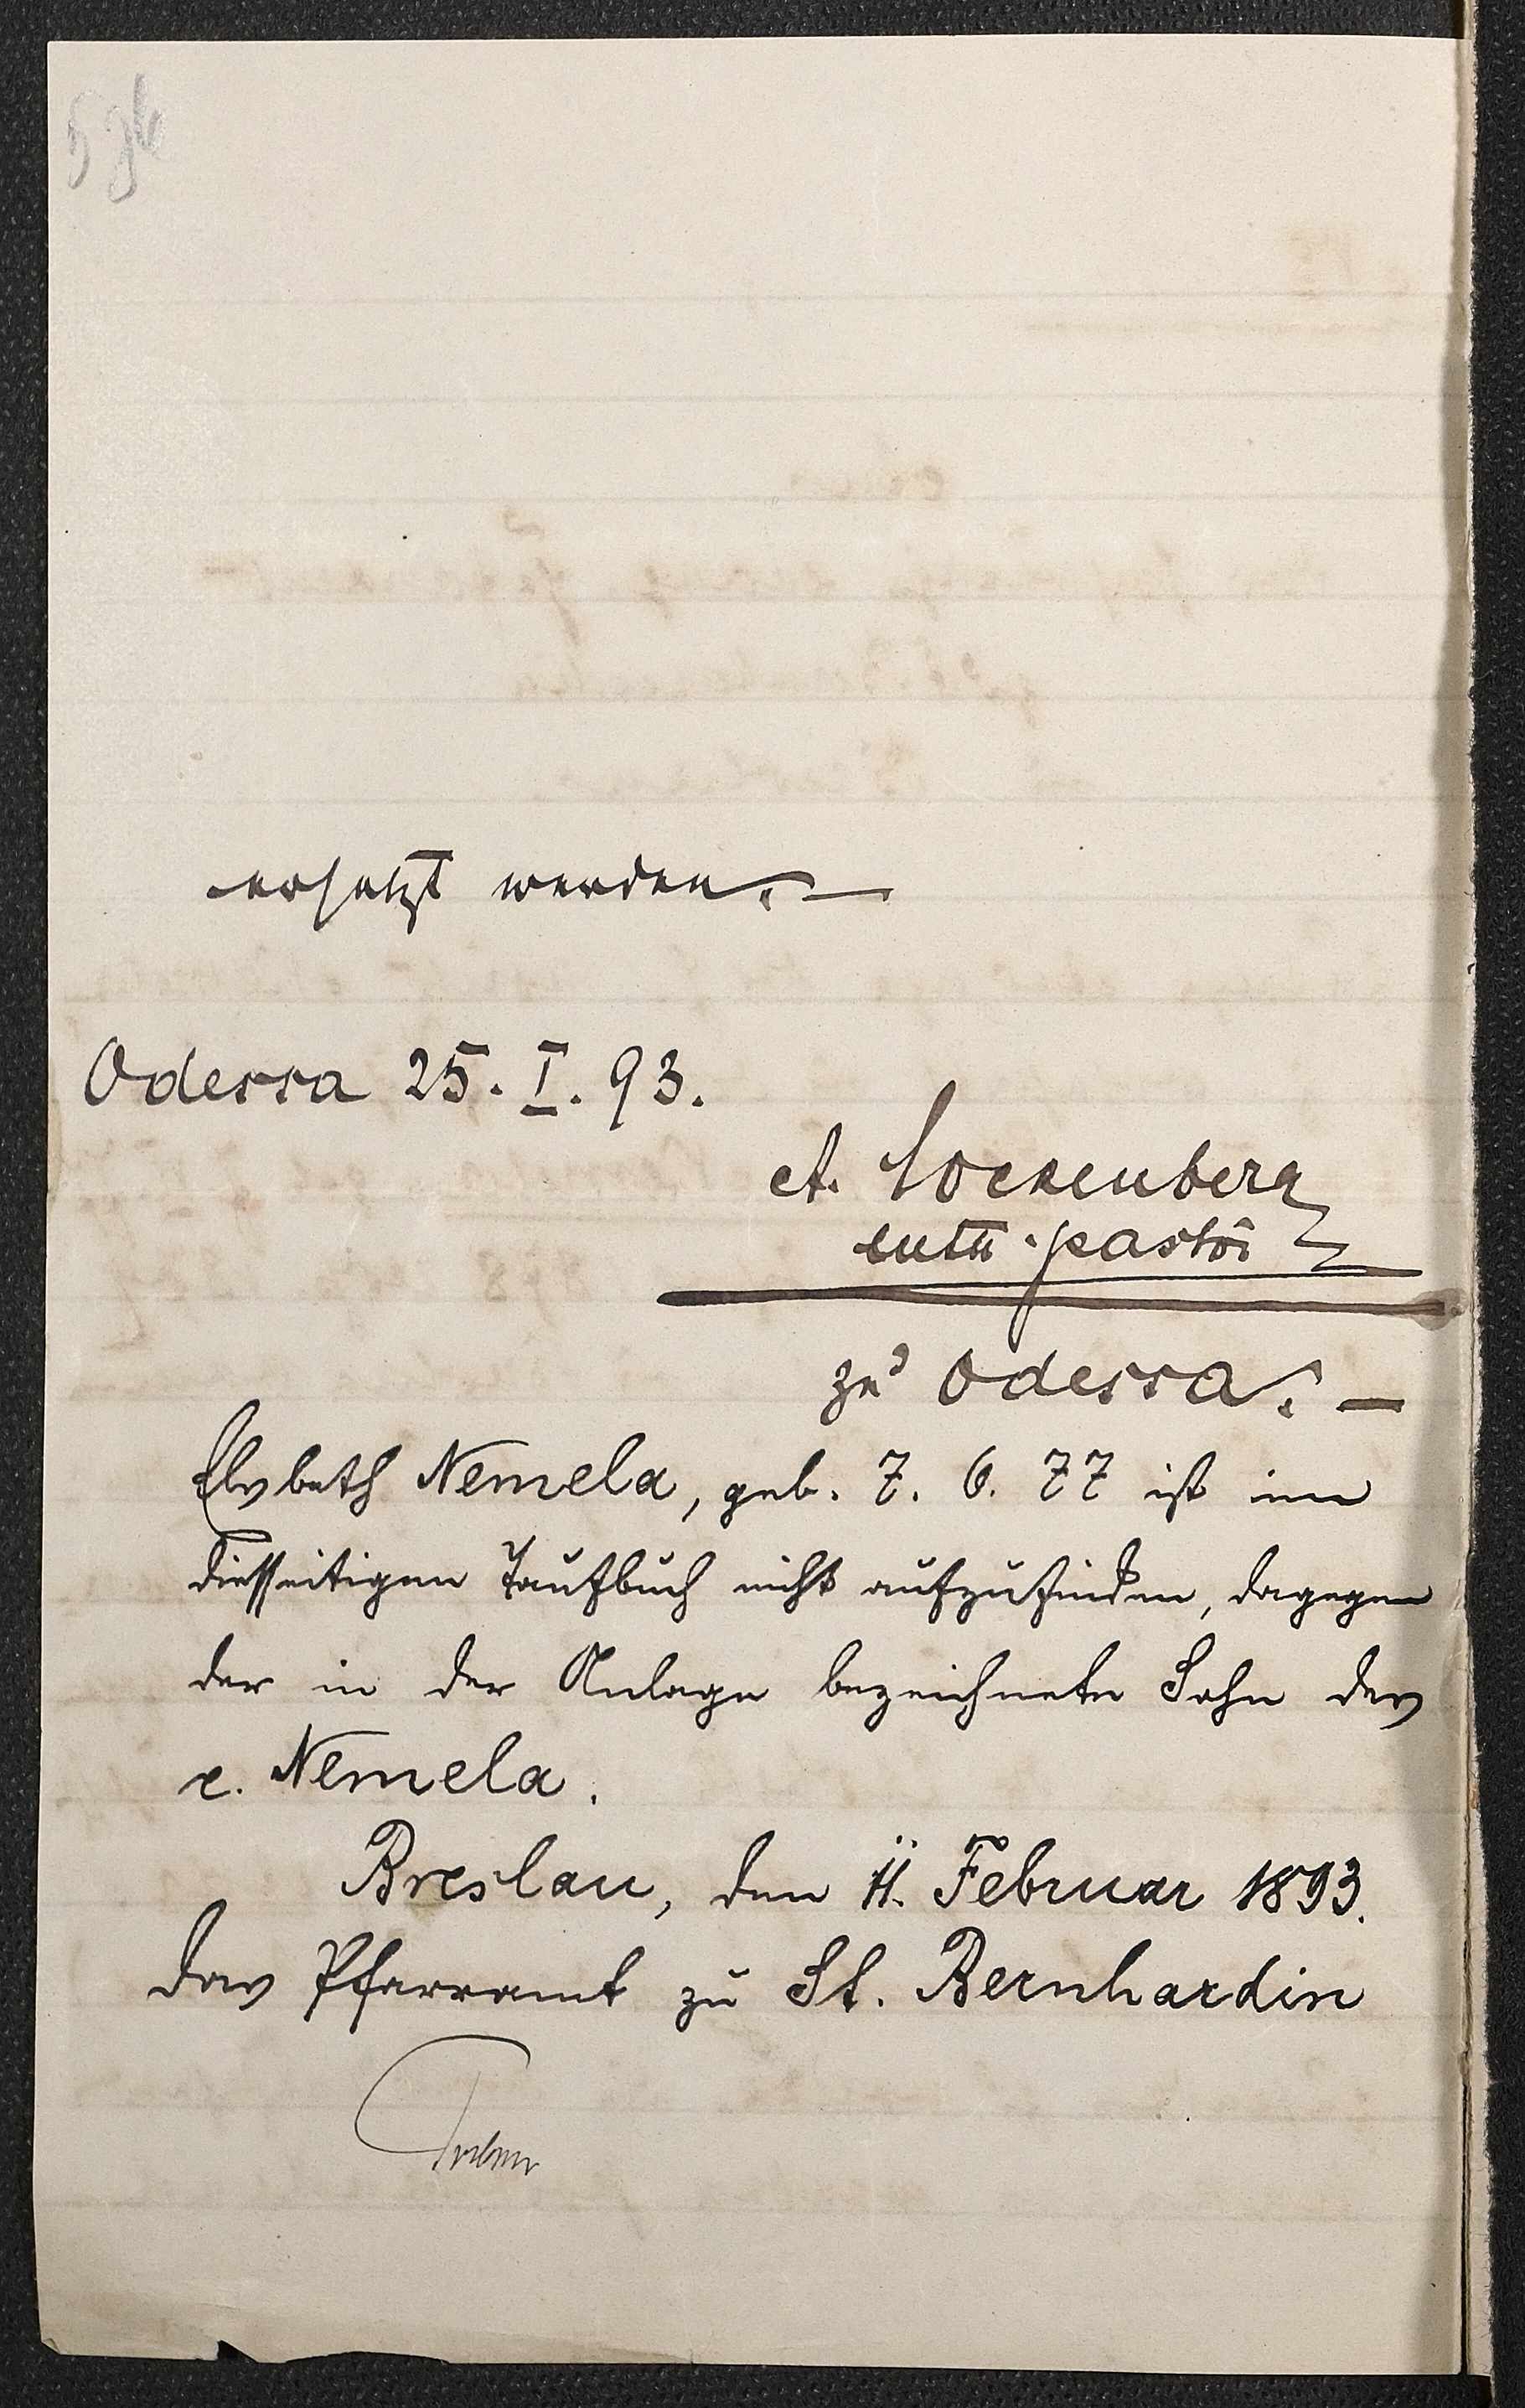 ersetzt werden. —
Odessa 25. I. 93.
A. Lockenberg
luth. pastor
zu Odessa. —
Elsbeth Nemela, geb. 7. 6. 77 ist im
diesseitigen Taufbuch nicht aufzufinden, dagegen
der in der Anlage bezeichnete Sohn des
c. Nemela.
Breslau, den 11. Februar 1893.
Das Pfarramt zu St. Bernhardin